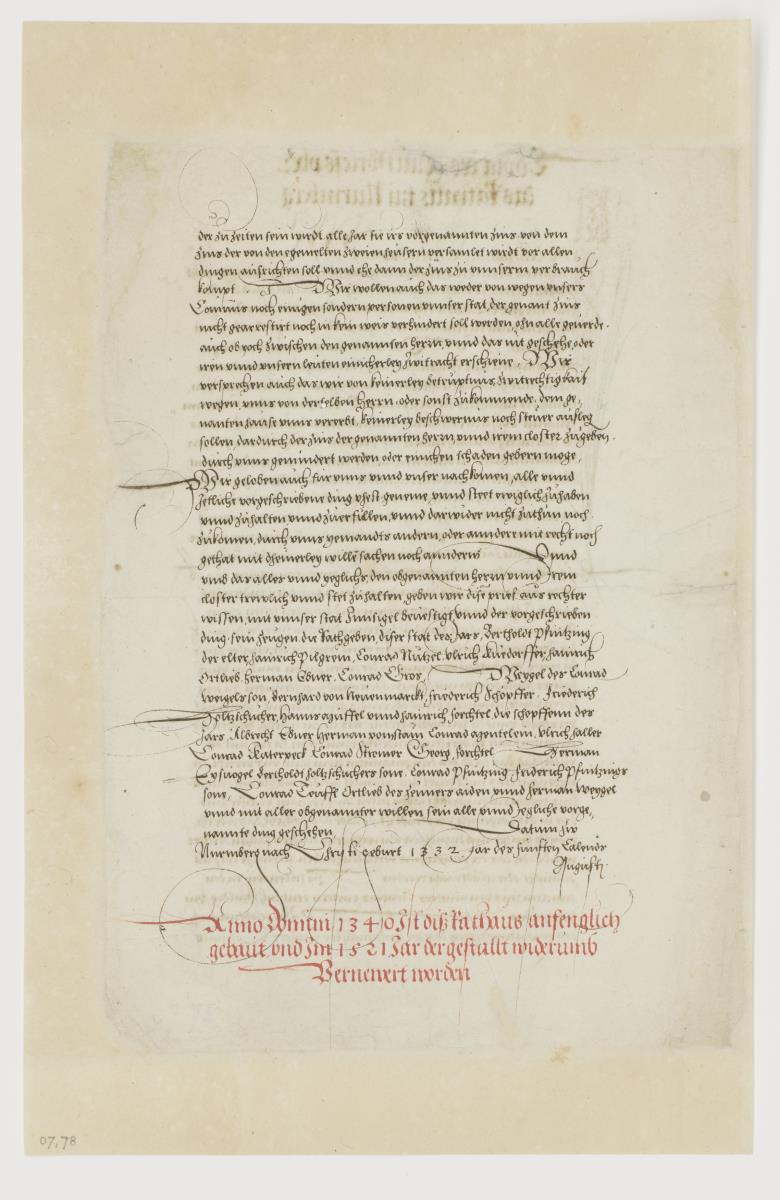 der zu zeiten sein wirdt alle Jar die irs vorgenannten zins von dem
zins der von den egemelten zweien heusern versamlet wirdt vor allen
dingen ausrichten soll vnnd ehe dann der zins zu vnnserm verbrauch
kompt. Wir wollen auch das weder von wegen vnsers
Comuns noch einigen sondern personen vnnser stat, der genant zins
nicht gearrestirt noch in kein weis verhindert soll werden, ohn alle geuerde.
auch ob joch zwischen den genannten herrn, vnnd das nit geschehe, oder
iren vnnd vnsern leuten einicherley zwitracht erschiene, Wir
versprechen auch das wir von keinerley betrupnus zwitrechtigkait
wegen, vnns von derselben Herrn, oder sonst zukommende, dem ge,
nanten hause vnns vererbt, keinerley beschwernus noch steuer aufleg
sollen dardurch der zins der genannten herrn vnnd irem closter zugeben.
durch vnns gemindert werden oder einichen schaden gebern moge,
Wir geloben auch für vnns vnnd vnser nachkomen, alle vnnd
Jetliche vorgeschriebene ding vhest geneme, vnnd steet ewiglich zuhaben
vnnd zuhalten vnnd zuerfüllen, vnnd darwider nicht zuthun noch
zukomen, durch vnns yemandts andern, oder anndere mit recht noch
gethat mit dheinerley wille sachen noch annders Vnnd
vmb das alles vnnd yeglichs, den obgenannten herrn vnnd Irem
closter trewlich vnnd stet zuhalten, geben wir dise brief aus rechter
wissen, mit vnnser stat Innsigel bevestigt, vnnd der vorgeschrieben
ding sein zeugen, die Rathgeben, diser stat des Jars, Bertholdt Pfintzing
der elter, hainrich Pilgrem, Conrad Nützel, Vlrich Kudorffer, hainrich
Ortlieb, herman Ebner, Conrad Gros, Weygel des Conrad
Weigels son, Bernhard von Neuenmarckt, friederich Schopffer, Friederich
Holtzschucher, Hanns Muffel vnnd hainrich forchtel, die schopffenn des
Jars, Albrecht Ebner herman vom stain Conrad agentelem, Vlrich haller
Conrad Katerpeck Conrad Kremer Georg forchtel Herman
Eysuogel Bertholdt holtzschuchers sone, Conrad Pfintzing friderich Pfintzings
sone, Conrad Teuffl Ortlieb des zenners aiden vnnd herman Weygel
vnnd mit aller obgenannter willen sein alle vnnd Jegliche vorge,
nannte ding geschehen, Datum zw
Nürmberg nach Christi geburt 1332 Jar des fünften Calends
Augusti.
Anno Domini 1340 Ist diß Rathaus anfenglich
gebaut vnd Im 1521 Jar der gestallt widerumb
Vernewert worden
07,78